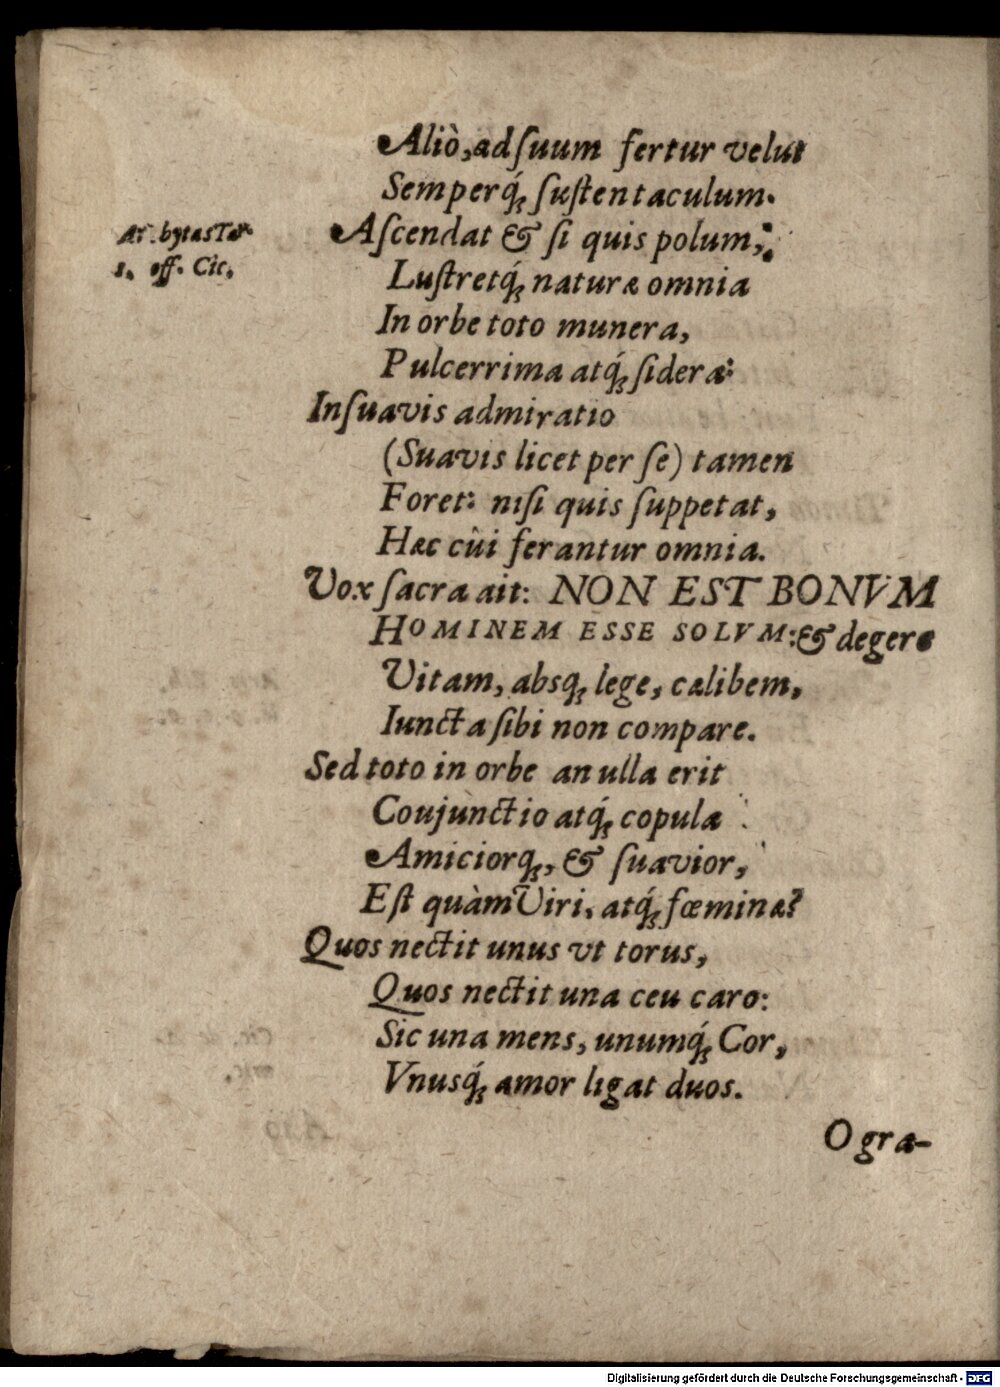 Aliò, ad ſuum fertur velut
Semperq́; ſuſtentaculum.
Ar.bytas Tar.
1. off. Cic.
Aſcendat & ſi quis polum,
Luſtretq́; naturæ omnia
In orbe toto munera,
Pulcerrima atq́; ſidera:
Inſuavis admiratio
(Suavis licet per ſe) tamen
Foret: niſi quis ſuppetat,
Hæc cùi ferantur omnia.
Vox ſacra ait: NON EST BONVM
HOMINEM ESSE SOLVM: & degere
Vitam, absq; lege, cælibem,
Iuncta ſibi non compare.
Sed toto in orbe an ulla erit
Coujunctio atq́; copula
Amiciorq;, & ſuavior,
Eſt quàm Viri, atq́; fœminæ?
Quos nectit unus vt torus,
Quos nectit una ceu caro:
Sic una mens, unumq́; Cor,
Vnusq́; amor ligat duos.
O gra-
Digitalisierung gefördert durch die Deutsche Forschungsgemeinschaft - DFG